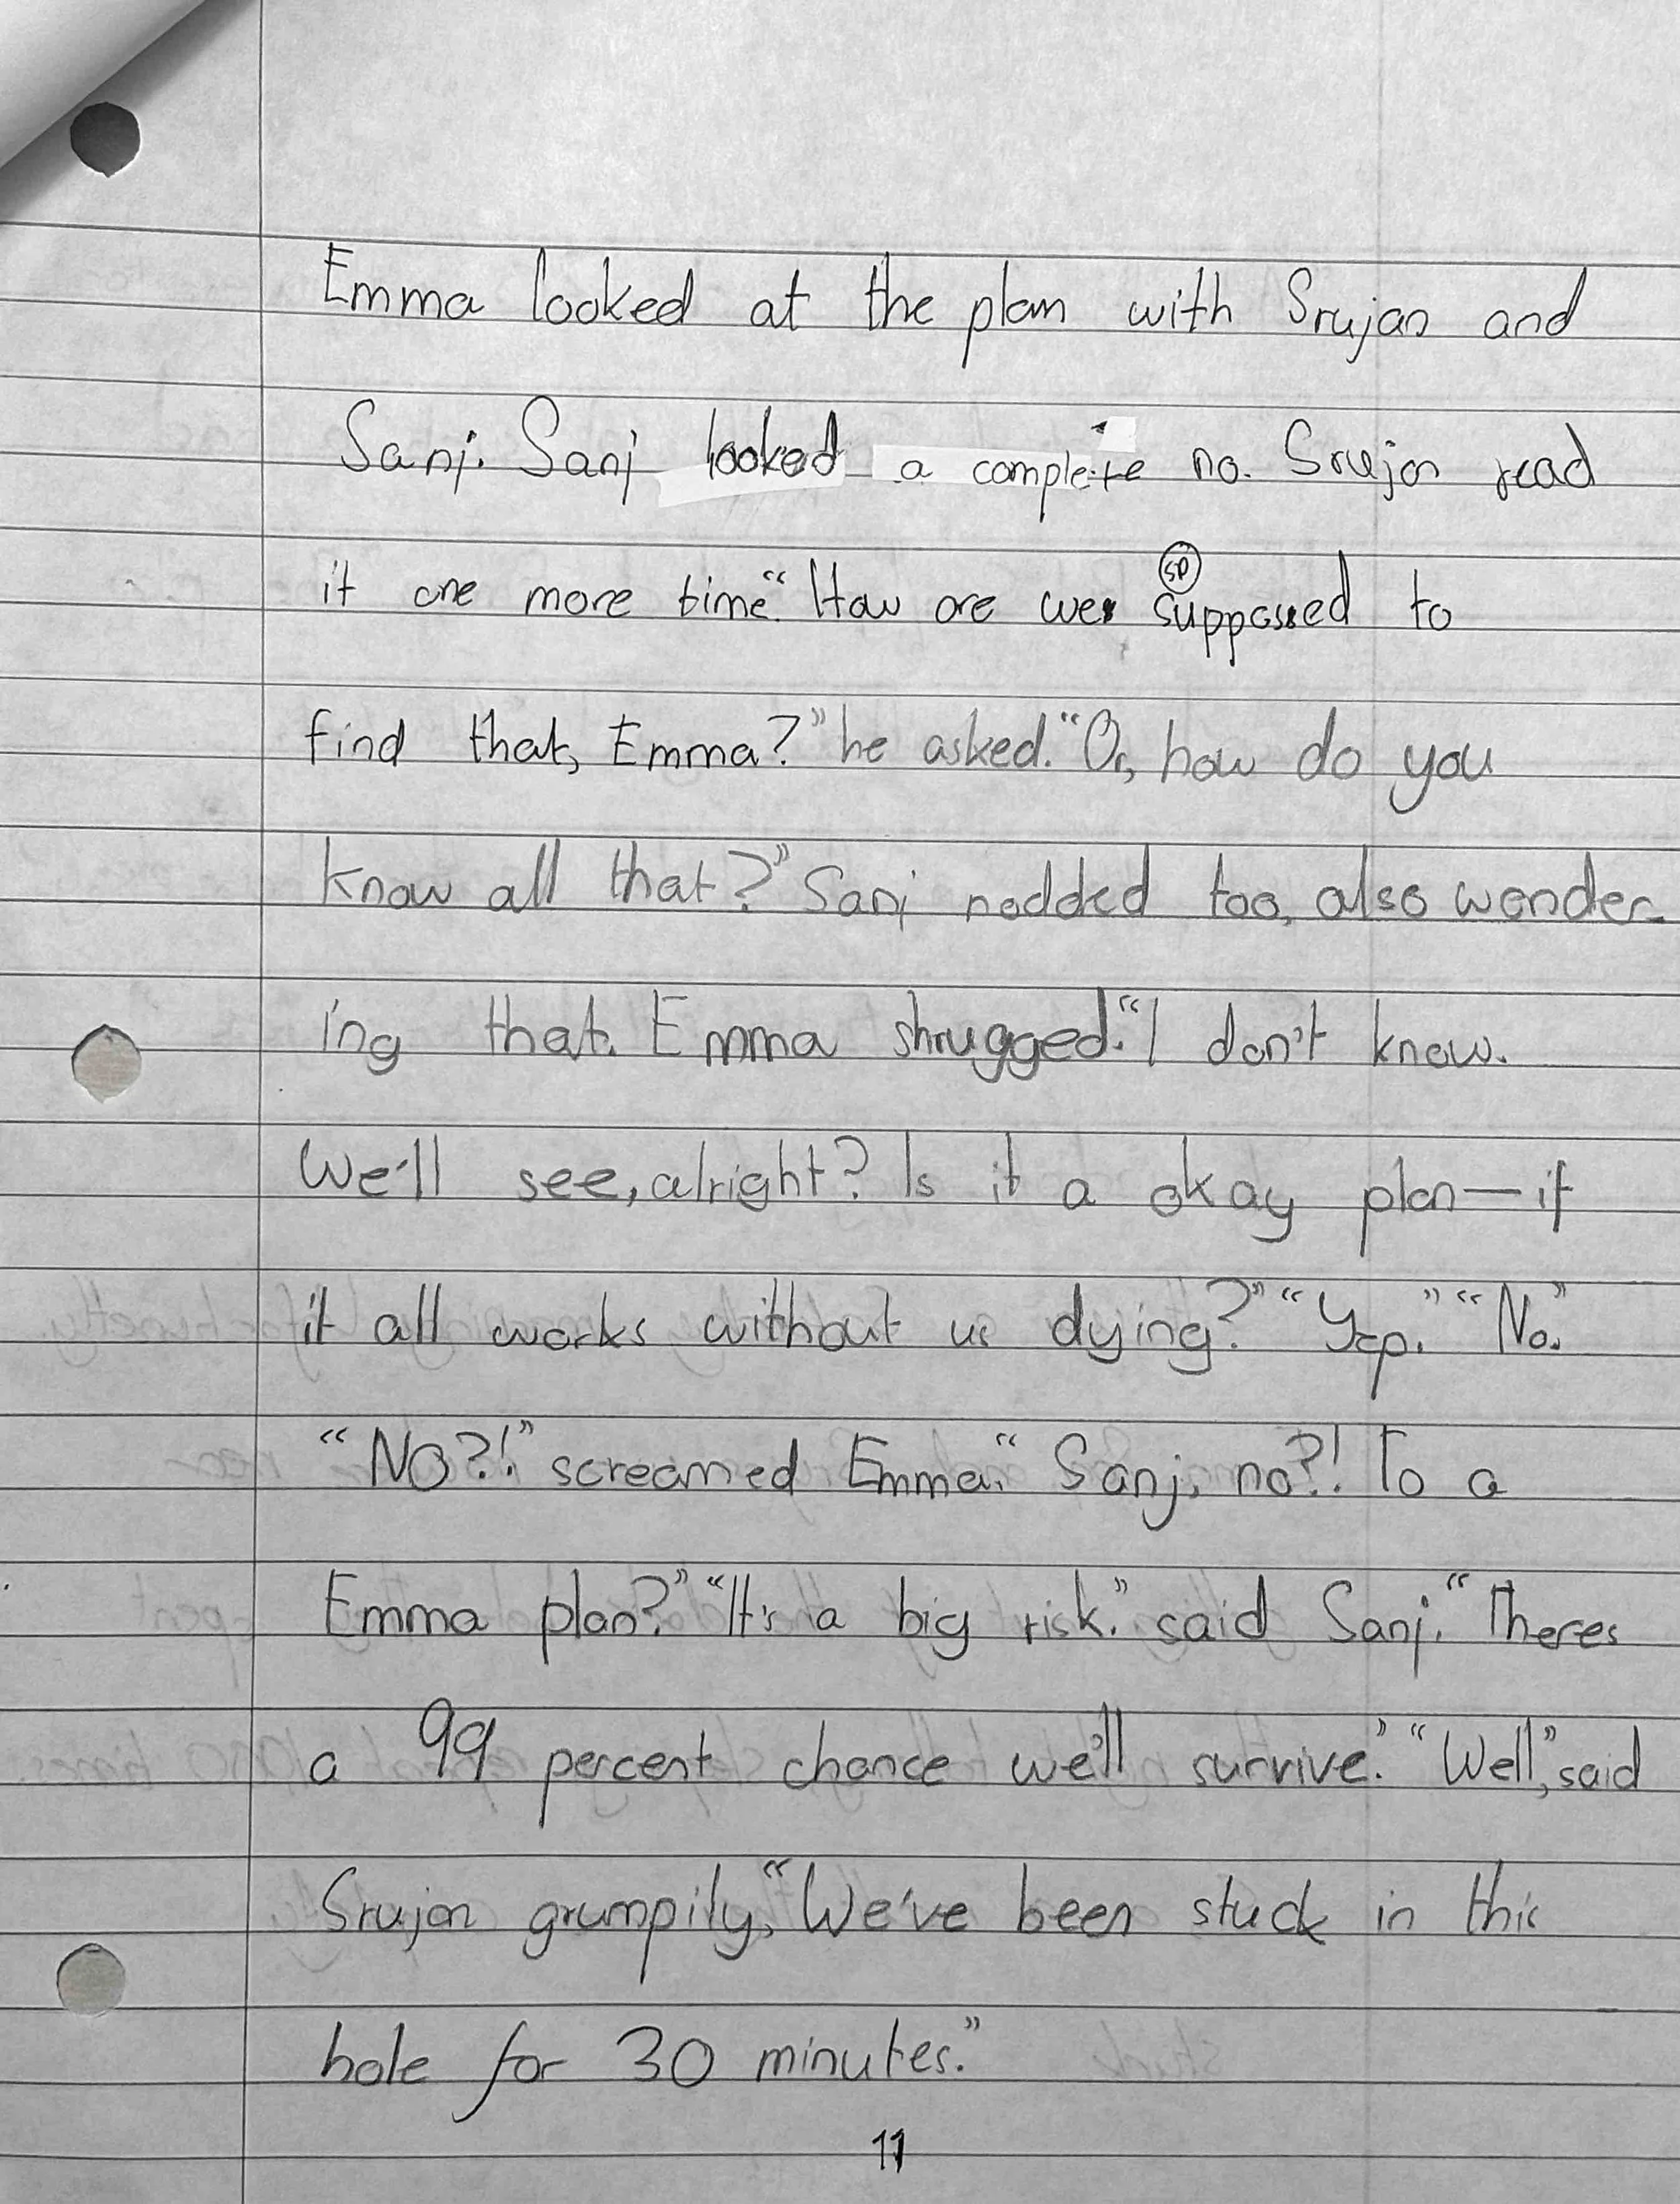 Emma looked at the plan with Srujan and
Sanj. Sanj looked a complete no. Srujan read
it one more time. “How are we supposed to
find that, Emma?” he asked. “Or, how do you
know all that?” Sanj nodded too, also wonder-
ing that. Emma shrugged. “I don't know.
We'll see, alright? Is it a okay plan—if
it all works without us dying?” “Yep.” “No.”
“NO?!” screamed Emma. “Sanj, no?! To a
Emma plan?” “It's a big risk.” said Sanj. “Theres
a 99 percent chance we'll survive.” “Well,” said
Srujan grumpily, “We've been stuck in this
hole for 30 minutes.”
11